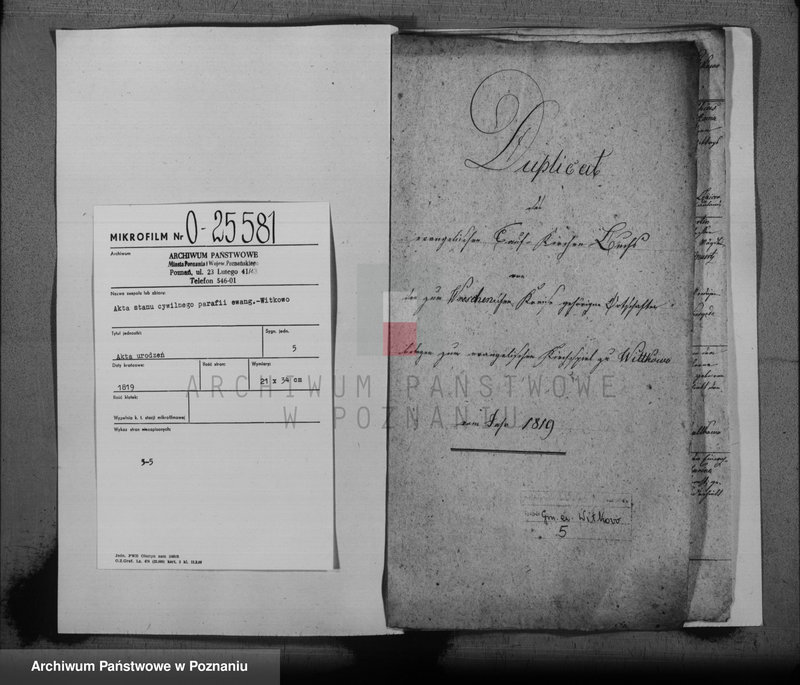 MIKROFILM Nr O-25581
Archiwum
ARCHIWUM PAŃSTWOWE
Miasta Poznania i Wojew. Poznańskiego
Poznań, ul. 23 Lutego 41/43
Telefon 546-01
Nazwa zespołu lub zbioru:
Akta stanu cywilnego parafii ewang.-Witkowo
Tytuł jednostki:
Sygn. jedn.
5
Akta urodzeń
Daty krańcowe:
Ilość stron:
Wymiary:
1819
21 x 34 cm
Ilość klatek:
Wypełnia k. t. stacji mikrofilmowej
Wykaz stron niezapisanych:
3-5
Duplicat
des
evangelischen Tauf- Kirchen Buchs
von
den zum Wreschenschen Kreise gehörigen Ortschaften
zum evangelischen Kirchspiel zu Wittkowo
vom Jahr 1819
Gm. ew. Witkowo
5
ARCHIWUM PAŃSTWOWE
W POZNANIU
Archiwum Państwowe w Poznaniu